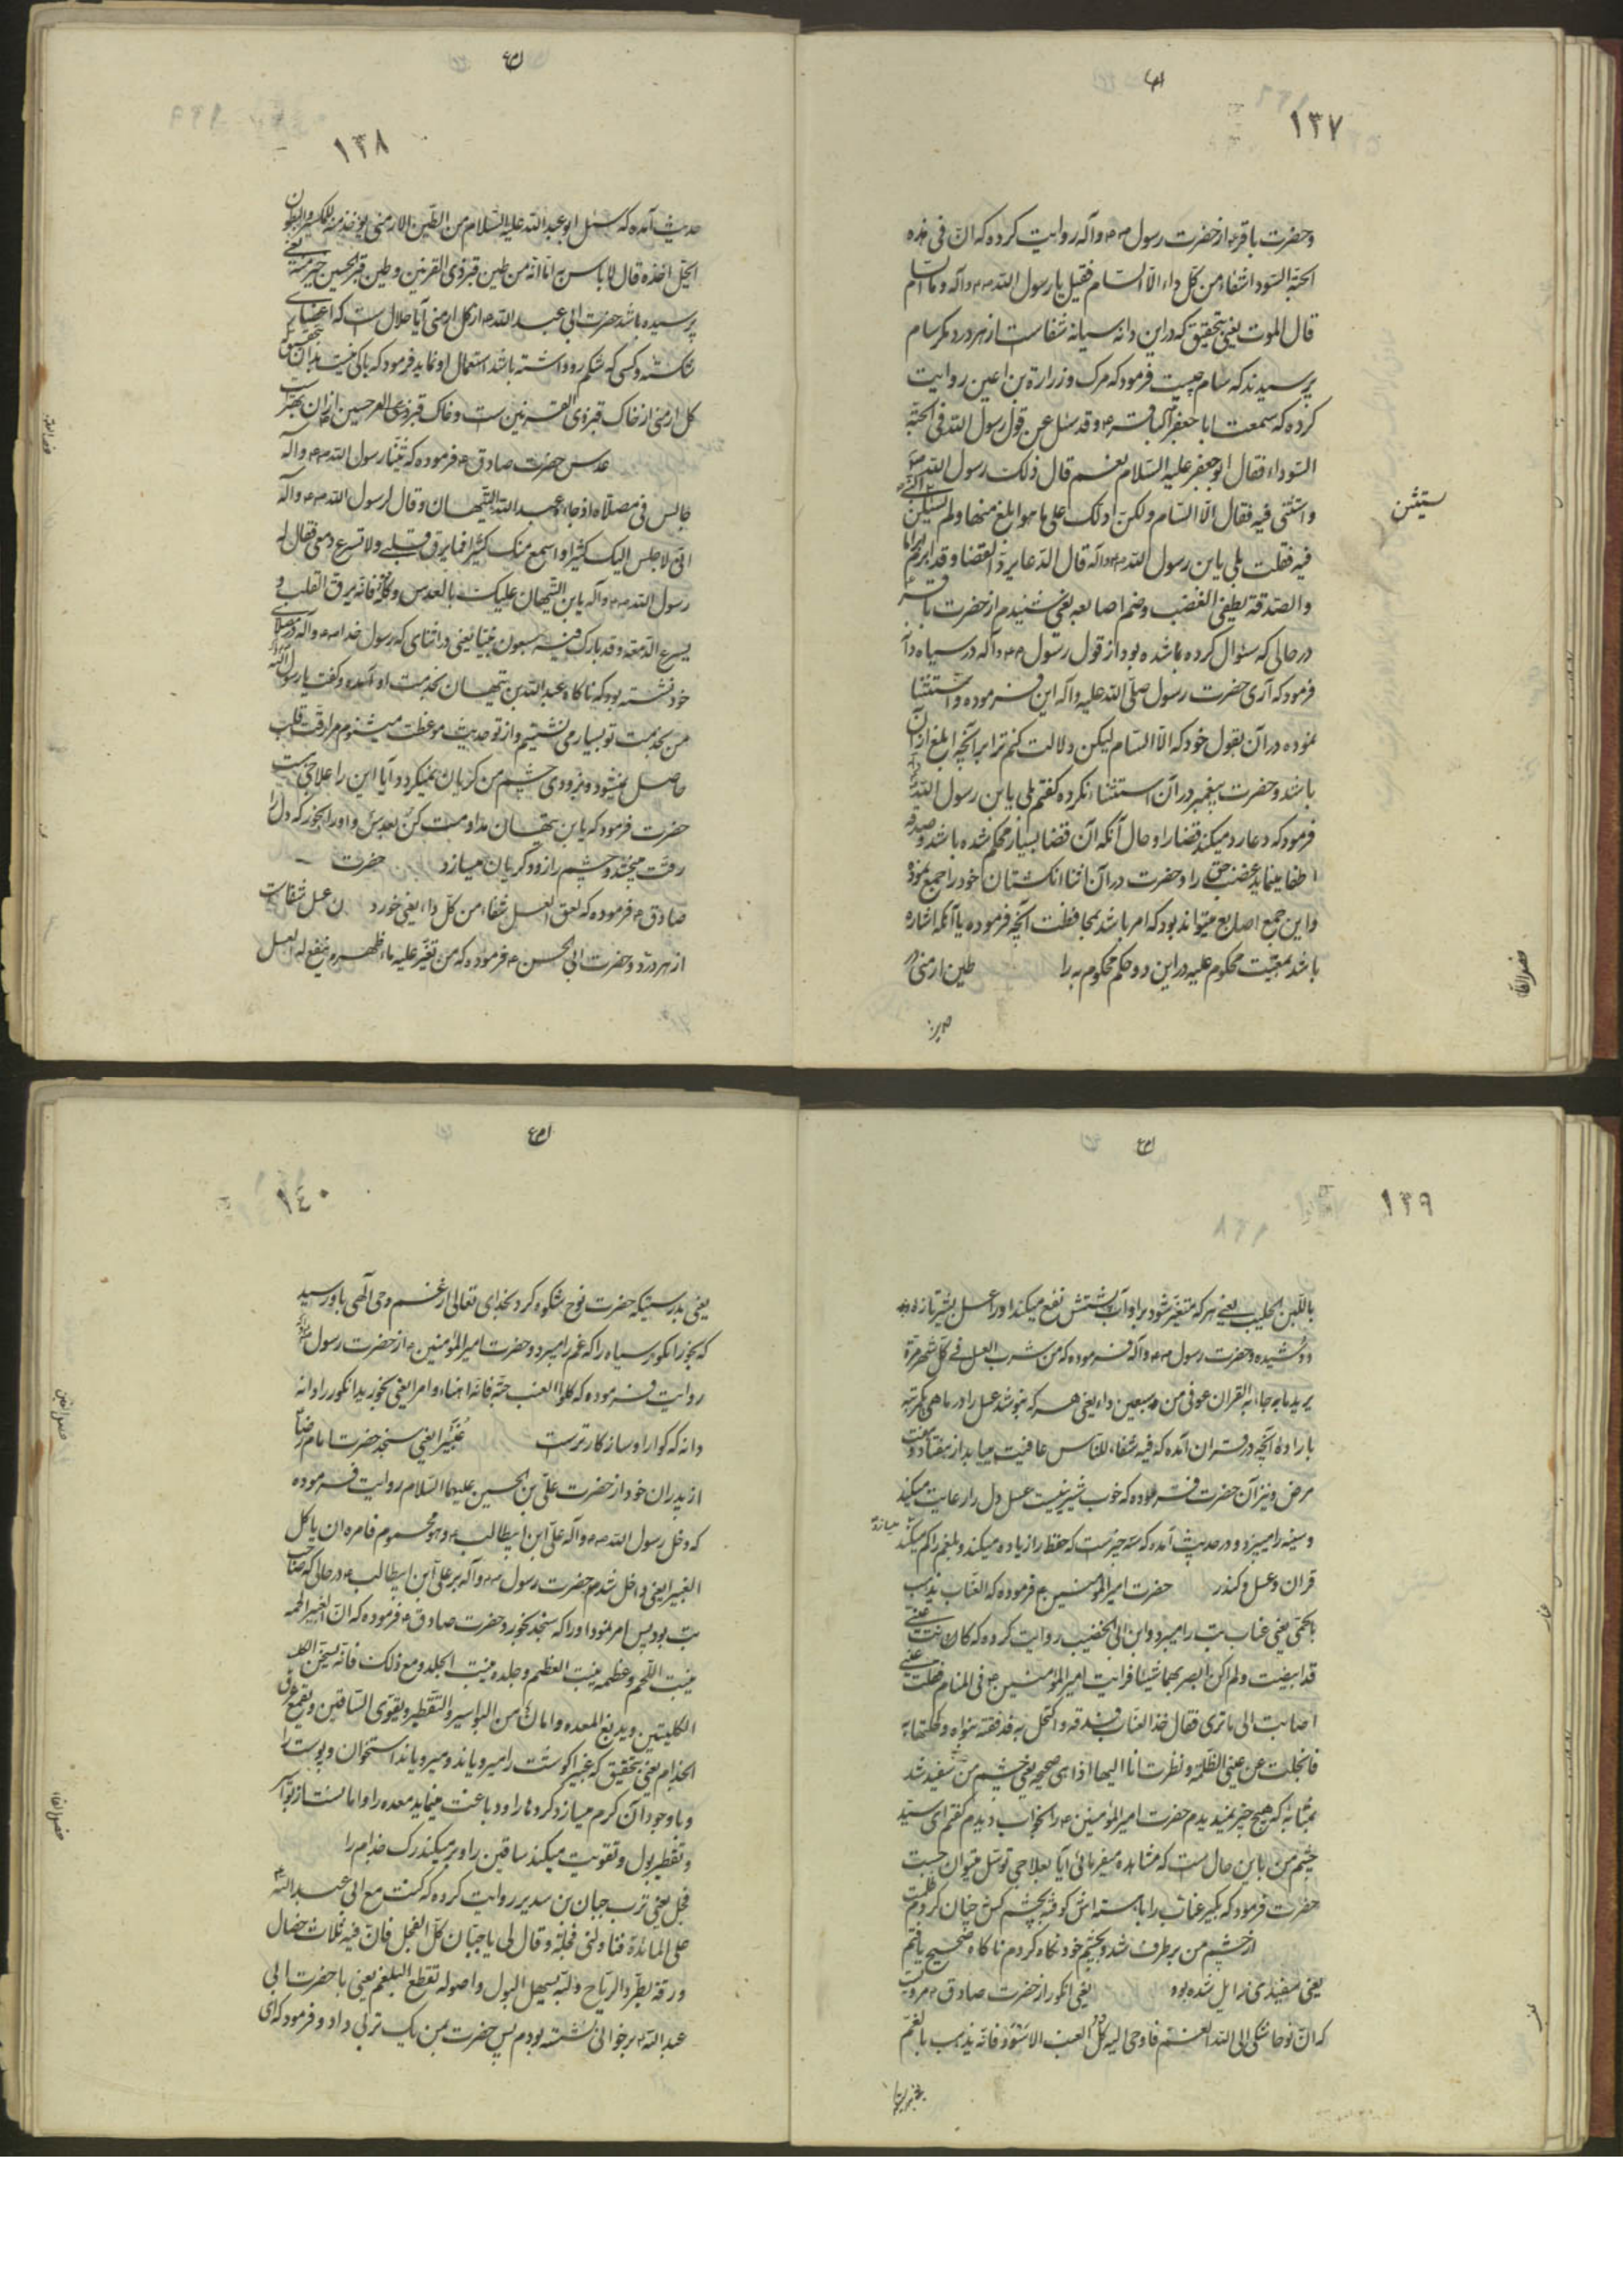 ١٣٧
وحضرت باقر ع از حضرت رسول ص م وآله روایت کرده که ان فی هذه
الحبة السوداء شفاء من کل داء الا السام فقیل یا رسول الله ص م وآله وما السام
قال الموت یعنی بتحقیق که در این دانه سیانه شفاست از هر درد مکر سام
پرسیدند که سام چیست فرمود که مرک و زرارة بن اعین روایت
کرده که سمعت ابا جعفر الباقر ع وقد سئل عن قول رسول الله فی الحبة
السوداء فقال ابو جعفر علیه السلام نعم قال ذلک رسول الله ص
واستثنی فیه فقال الا السام ولکن ادلک علی ما هو ابلغ منها ولم یستثن النبی
یستثن
فیه فقلت بلی یابن رسول الله ص م وآله قال الدعا یرد القضا وقد ابرم ابراما
والصدقة تطفی الغضب وضم اصابعه یعنی شنیدم از حضرت باقر ع
در حالی که سئوال کرده شده بود از قول رسول ص م وآله در سیاه دانه
فرمود که آری حضرت رسول صلی الله علیه وآله این فرموده واستثنا
نموده در آن بقول خود که الا السام لیکن دلالت کنم ترا بر آنچه ابلغ از آن
باشد وحضرت پیغمبر در آن استثناء نکرده کفتم بلی یابن رسول الله
فرمود که دعا رد میکند قضا را وحال آنکه آن قضا بسیار محکم شده باشد وصدقه
اطفا مینماید غضب حق را وحضرت در آن اثنا انکشتان خود را جمع نمود
واین جمع اصابع میتواند بود که امر باشد بمحافظت آنچه فرموده یا آنکه اشاره
باشد بمعیت محکوم علیه در این دو حکم محکوم به را طین ارمنی در
١٣٨
حدیث آمده که سئل ابو عبد الله علیه السلام من الطین الارمنی یؤخذ منه للکسیر والمبطون
ایحل اخذه قال لا باس به اما انه من طین قبر ذی القرنین وطین قبر الحسین خیر منه یعنی
پرسیده باشد حضرت ابی عبد الله ع از کل ارمنی آیا حلال است که اعضای
شکسته وکسی که شکم رو داشته باشد استعمال او نماید فرمود که باکی نیست بدان بتحقیق که
کل ارمنی از خاک قبر ذی القرنین ست وخاک قبر حسین از آن بهتر است
عدس حضرت صادق ع فرموده که بینا رسول الله ص م وآله
جالس فی مصلاه اذ جاء عبد الله بن التیهان وقال لرسول الله ص م وآله
انی لاجلس الیک کثیرا واسمع منک کثیرا فما یرق قلبی ولا تسرع دمعی فقال له
رسول الله ص م وآله یابن التیهان علیک بالعدس وکله فانه یرق القلب و
یسرع الدمعة وقد بارک فیه سبعون نبیا یعنی در اثنای که رسول خدا ص م وآله در مصلای
خود نشسته بود که ناکاه عبد الله بن تیهان بخدمت او آمده وکفت یا رسول الله
من بخدمت تو بسیار می نشینم واز تو حدیث موعظت میشنوم مرا رقت قلب
حاصل نمیشود وبزودی چشم من کریان نمیکردد آیا این را علاجی هست
حضرت فرمود که یابن تیهان مداومت کن بعدس واو را بخور که دل را
رقت میبخشد وچشم را زود کریان میسازد حضرت
صادق ع فرموده که لعق العسل شفاء من کل داء یعنی خوردن عسل شفاست
از هر درد وحضرت ابی الحسن ع فرموده که من تغیر علیه ماء ظهره ینفع له العسل
١٣٩
باللبن الحلیب یعنی هر که متغیر شود بر او آب پشتش نفع میکند او را عسل بشیر تازه
دوشیده وحضرت رسول ص م وآله فرموده که من شرب العسل فی کل شهر مرة
یرید ما جاء به القران عوفی من سبعین داء یعنی هر که بنوشد عسل را در ماهی یکمرتبه
باراده آنچه در قران آمده که فیه شفاء للناس عافیت میابد از هفتاد وهفت
مرض ونیز آن حضرت فرموده که خوب شیرینیست عسل دل را رعایت میکند
وسینه را میبرد ودر حدیث آمده که سه چیزست که حفظ را زیاده میکند وبلغم را کم میکند
قران وعسل وکندر حضرت امیر المؤمنین ع فرموده که العناب یذهب
بالحمی یعنی عناب تب را میبرد وابن ابی الخضیب روایت کرده که کانت عینی
قد ابیضت ولم اکن ابصر بهما شیئا فرایت امیر المؤمنین ع فی المنام فقلت عینی
اصابت الی ما تری فقال خذ العناب فدقه واکتحل به فدققته بنواه وکحلتها به
فانجلت عن عینی الظلمة ونظرت انا الیها اذا هی صحیحة یعنی چشم من سفید شد
بمثابه که هیچ چیز نمیدیدم حضرت امیر المؤمنین ع را بخواب دیدم کفتم ای سید
چشم من باین حال ست که مشاهده میفرمائی آیا بعلاجی توسل میتوان جست
حضرت فرمود که بگیر عناب را با هسته اش کوفته بچشم کش چنان کردم ظلمت
از چشم من برطرف شد وبچشم خود نکاه کردم ناکاه صحیح یافتم
یعنی سفیدی زایل شده بود یعنی انکور از حضرت صادق ع مرویست
که ان نوحا شکی الی الله الغم فاوحی الیه کل العنب الاسود فانه یذهب بالغم
١٤٠
یعنی بدرستیکه حضرت نوح شکوه کرد بخدای تعالی از غم وحی آلهی باو رسید
که بخور انکور سیاه را که غم را میبرد وحضرت امیر المؤمنین ع از حضرت رسول
روایت فرموده که کلوا العنب حبة فانه اهناء وامرا یعنی بخورید انکور را دانه
دانه که کوارا وسازکارترست غبیرا یعنی سنجد حضرت امام رضا
از پدران خود از حضرت علی بن الحسین علیهما السلام روایت فرموده
که دخل رسول الله ص م وآله علی ابن ابیطالب ع وهو محموم فامره ان یاکل
الغبیرا یعنی داخل شد حضرت رسول ص م وآله بر علی ابن ابیطالب ع در حالی که صاحب
تب بود پس امر نمود او را که سنجد بخورد وحضرت صادق ع فرموده که ان الغبیرا لحمه
ینبت اللحم وعظمه ینبت العظم وجلده ینبت الجلد ومع ذلک فانه یسخن
الکلیتین ویدبغ المعده وامان من البواسیر والتقطیر ویقوی الساقین ویقمع عرق
الجذام یعنی بتحقیق که غبیرا کوشت را میرویاند ومیرویاند استخوان وپوست را
وباوجود آن کرم میسازد کردها را ودباغت مینماید معده را وامانست از بواسیر
وتقطیر بول وتقویت میکند ساقین را وبر میکند رک جذام را
فجل یعنی ترب حنان بن سدیر روایت کرده که کنت مع ابی عبد الله ع
علی المائدة فناولنی فجلة وقال لی یا حنان کل الفجل فان فیه ثلاث خصال
ورقه یطرد الریاح ولبه یسهل البول واصوله تقطع البلغم یعنی با حضرت ابی
عبد الله ع بر خوانی نشسته بودم پس حضرت بمن یک تربی داد وفرمود که ای